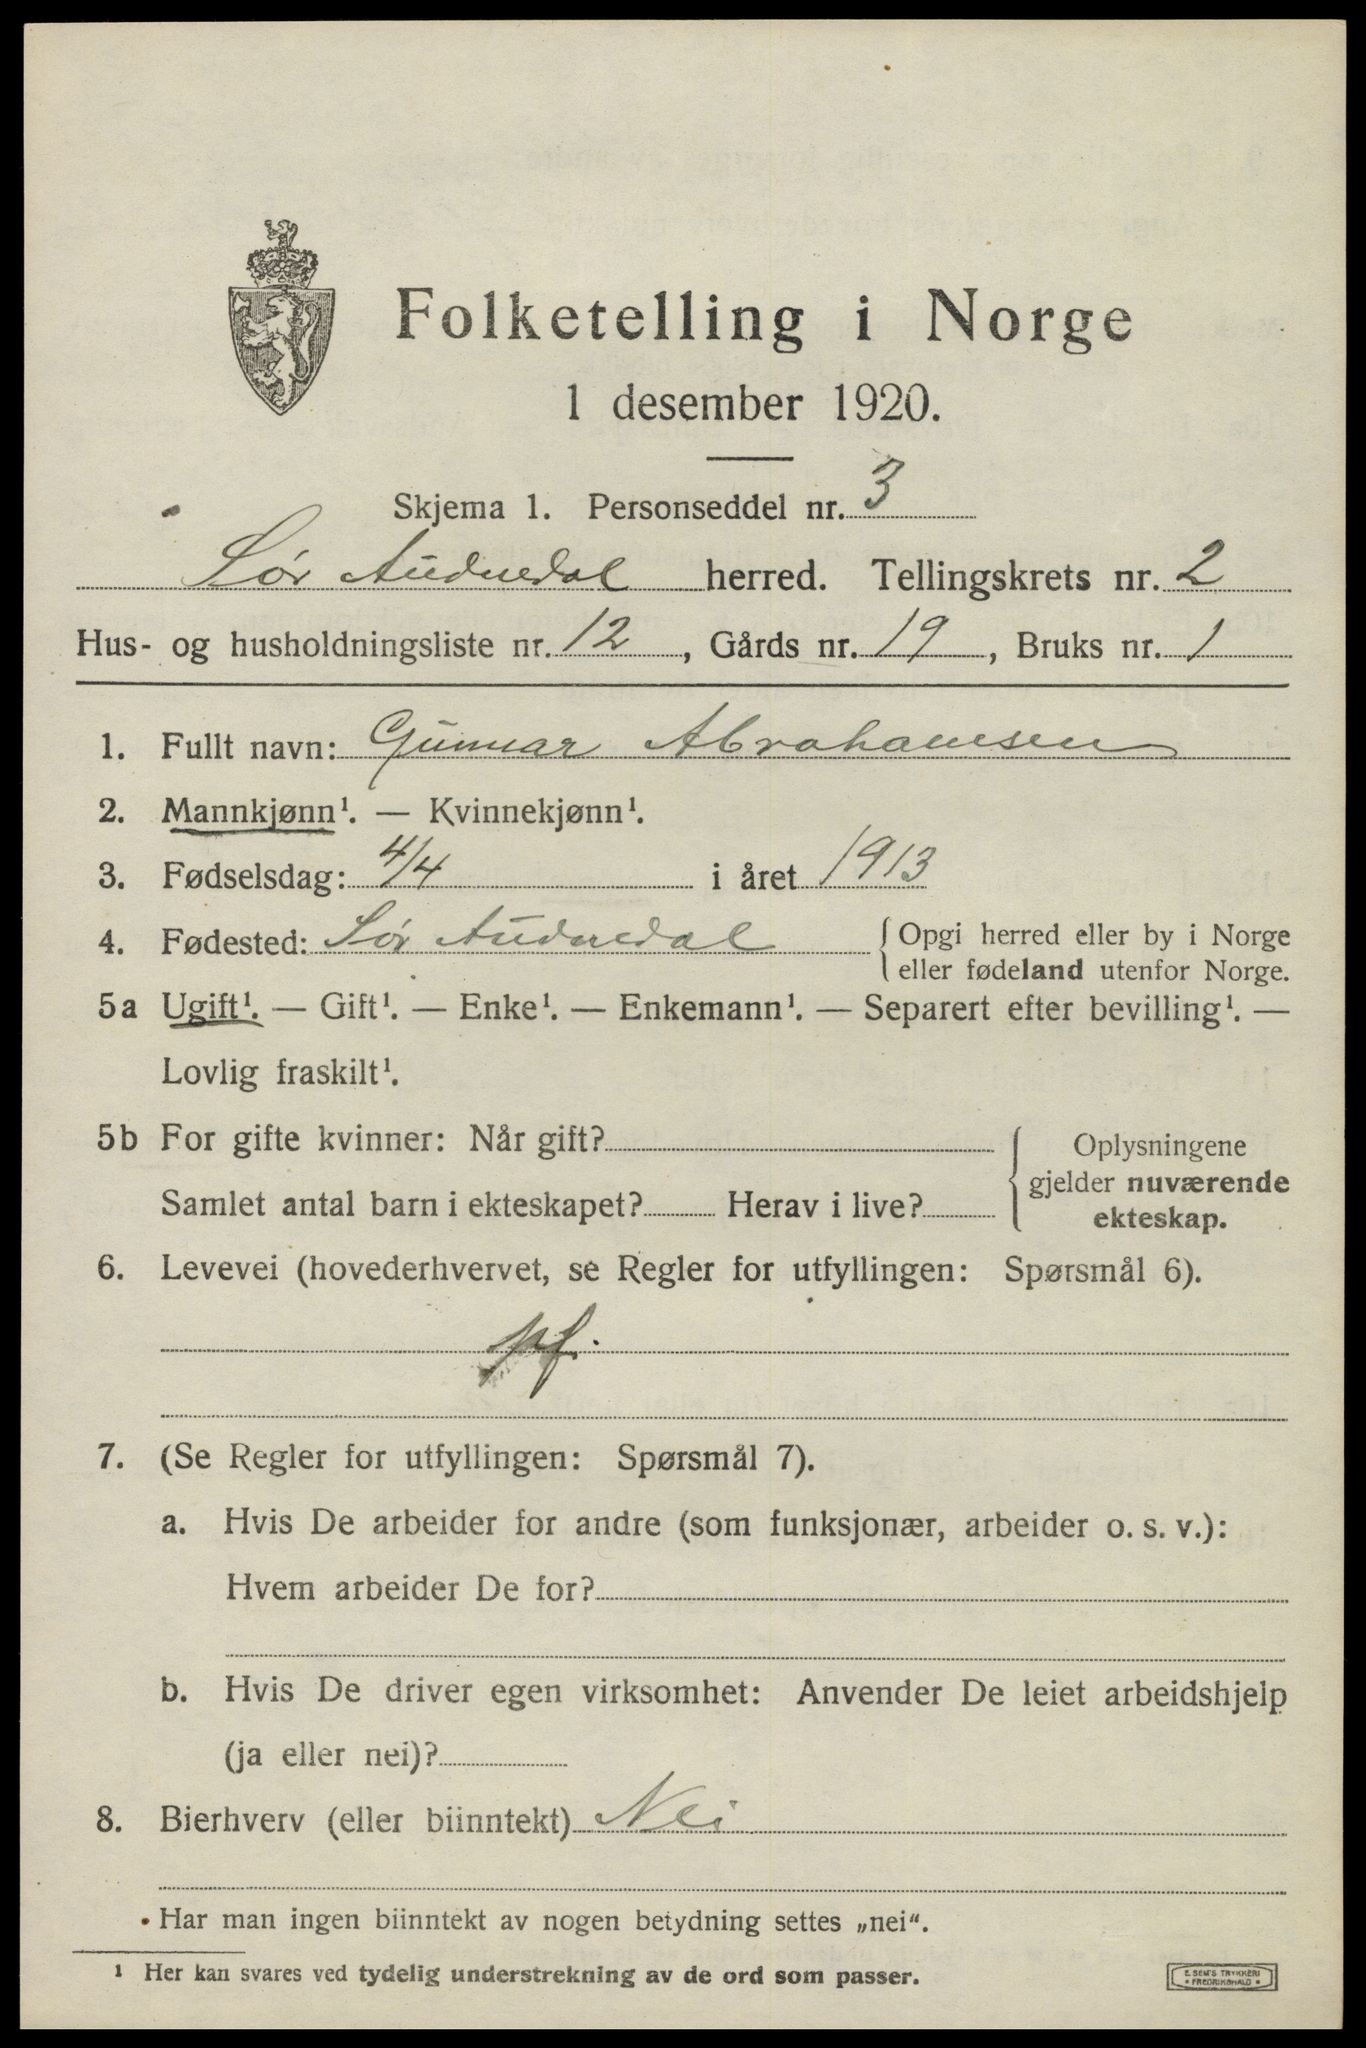 Folketelling i Norge
1 desember 1920.
Skjema 1. Personseddel nr. 3
Sør Audnedal herred. Tellingskrets nr. 2
Hus- og husholdningsliste nr. 12, Gårds nr. 19, Bruks nr. 1
1. Fullt navn: Gunnar Abrahamsen
2. Mannkjønn¹. — Kvinnekjønn¹.
3. Fødselsdag: 4/4 i året 1913
4. Fødested: Sør Audnedal { Opgi herred eller by i Norge
eller fødeland utenfor Norge.
5a Ugift¹. — Gift¹. — Enke¹. — Enkemann¹. — Separert efter bevilling¹. —
Lovlig fraskilt¹.
5b For gifte kvinner: Når gift?
Samlet antal barn i ekteskapet? Herav i live?
{ Oplysningene
gjelder nuværende
ekteskap.
6. Levevei (hovederhvervet, se Regler for utfyllingen: Spørsmål 6).
7. (Se Regler for utfyllingen: Spørsmål 7).
a. Hvis De arbeider for andre (som funksjonær, arbeider o. s. v.):
Hvem arbeider De for?
b. Hvis De driver egen virksomhet: Anvender De leiet arbeidshjelp
(ja eller nei)?
8. Bierhverv (eller biinntekt) Nei
Har man ingen biinntekt av nogen betydning settes „nei“.
¹ Her kan svares ved tydelig understrekning av de ord som passer.
E. SEM'S TRYKKERI
FREDRIKSHALD